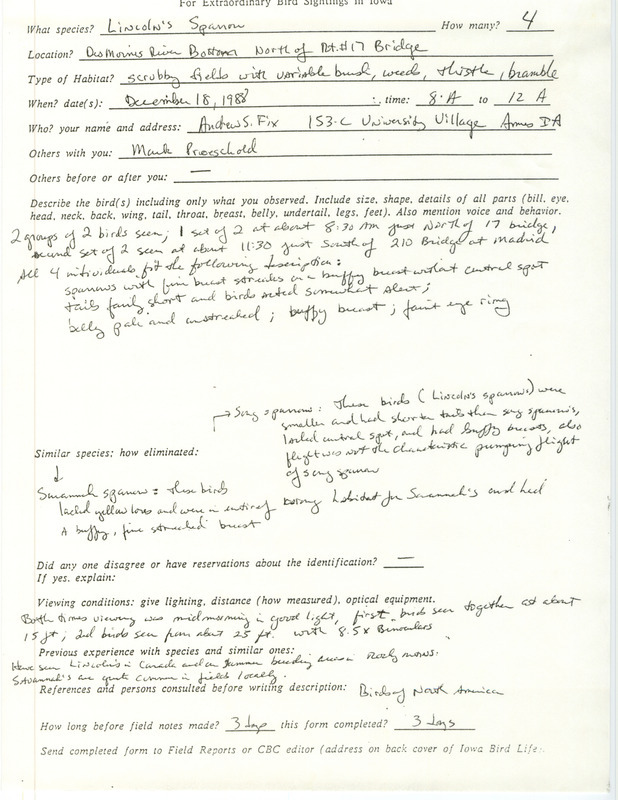 For Extraordinary Bird Sightings in Iowa
What species? Lincoln's Sparrow How many? 4
Location? Des Moines River Bottoms North of Rt. #17 Bridge
Type of Habitat? scrubby fields with variable brush, weeds, thistle, bramble
When? date(s): December 18, 1988 :, time: 8:A to 12 A
Who? your name and address: Andrew S. Fix 153-C University Village Ames IA
Others with you: Mark Proescholdt
Others before or after you: —
Describe the bird(s) including only what you observed. Include size, shape, details of all parts (bill, eye,
head, neck, back, wing, tail, throat, breast, belly, undertail, legs, feet). Also mention voice and behavior.
2 groups of 2 birds seen; 1 set of 2 at about 8:30 AM just North of 17 bridge,
second set of 2 seen at about 11:30 just South of 210 Bridge at Madrid
All 4 individuals fit the following description:
sparrows with fine breast streaks on a buffy breast without central spot
tails fairly short and birds acted somewhat alert;
belly pale and unstreaked; buffy breast; faint eye ring
→ Song sparrow: These birds (Lincoln's sparrows) were
smaller and had shorter tails than song sparrows,
lacked central spot, and had buffy breasts, also
flight was not the characteristic pumping flight
of song sparrow
Similar species; how eliminated:
↓
Savannah sparrow: these birds
lacked yellow lores and were in entirely wrong habitat for Savannah's and had
a buffy, fine streaked breast
Did any one disagree or have reservations about the identification? —
If yes, explain:
Viewing conditions: give lighting, distance (how measured), optical equipment.
Both times viewing was midmorning in good light, first birds seen together at about
15 ft; 2nd birds seen from about 25 ft. with 8.5x Binoculars
Previous experience with species and similar ones:
Have seen Lincoln's in Canada and on summer breeding areas in Rocky mtns.
Savannah's are quite common in fields locally.
References and persons consulted before writing description: Birds of North America
How long before field notes made? 3 days this form completed? 3 days
Send completed form to Field Reports or CBC editor (address on back cover of Iowa Bird Life.